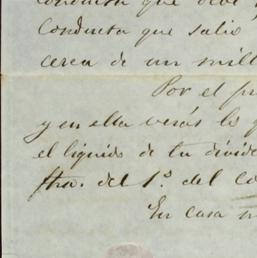 conducta que debe
Conducta que salio
cerca de un mill
Por el pr
y en ella verás lo q
el liquido de tu divide
ftra. del 1º. del Co
En casa n